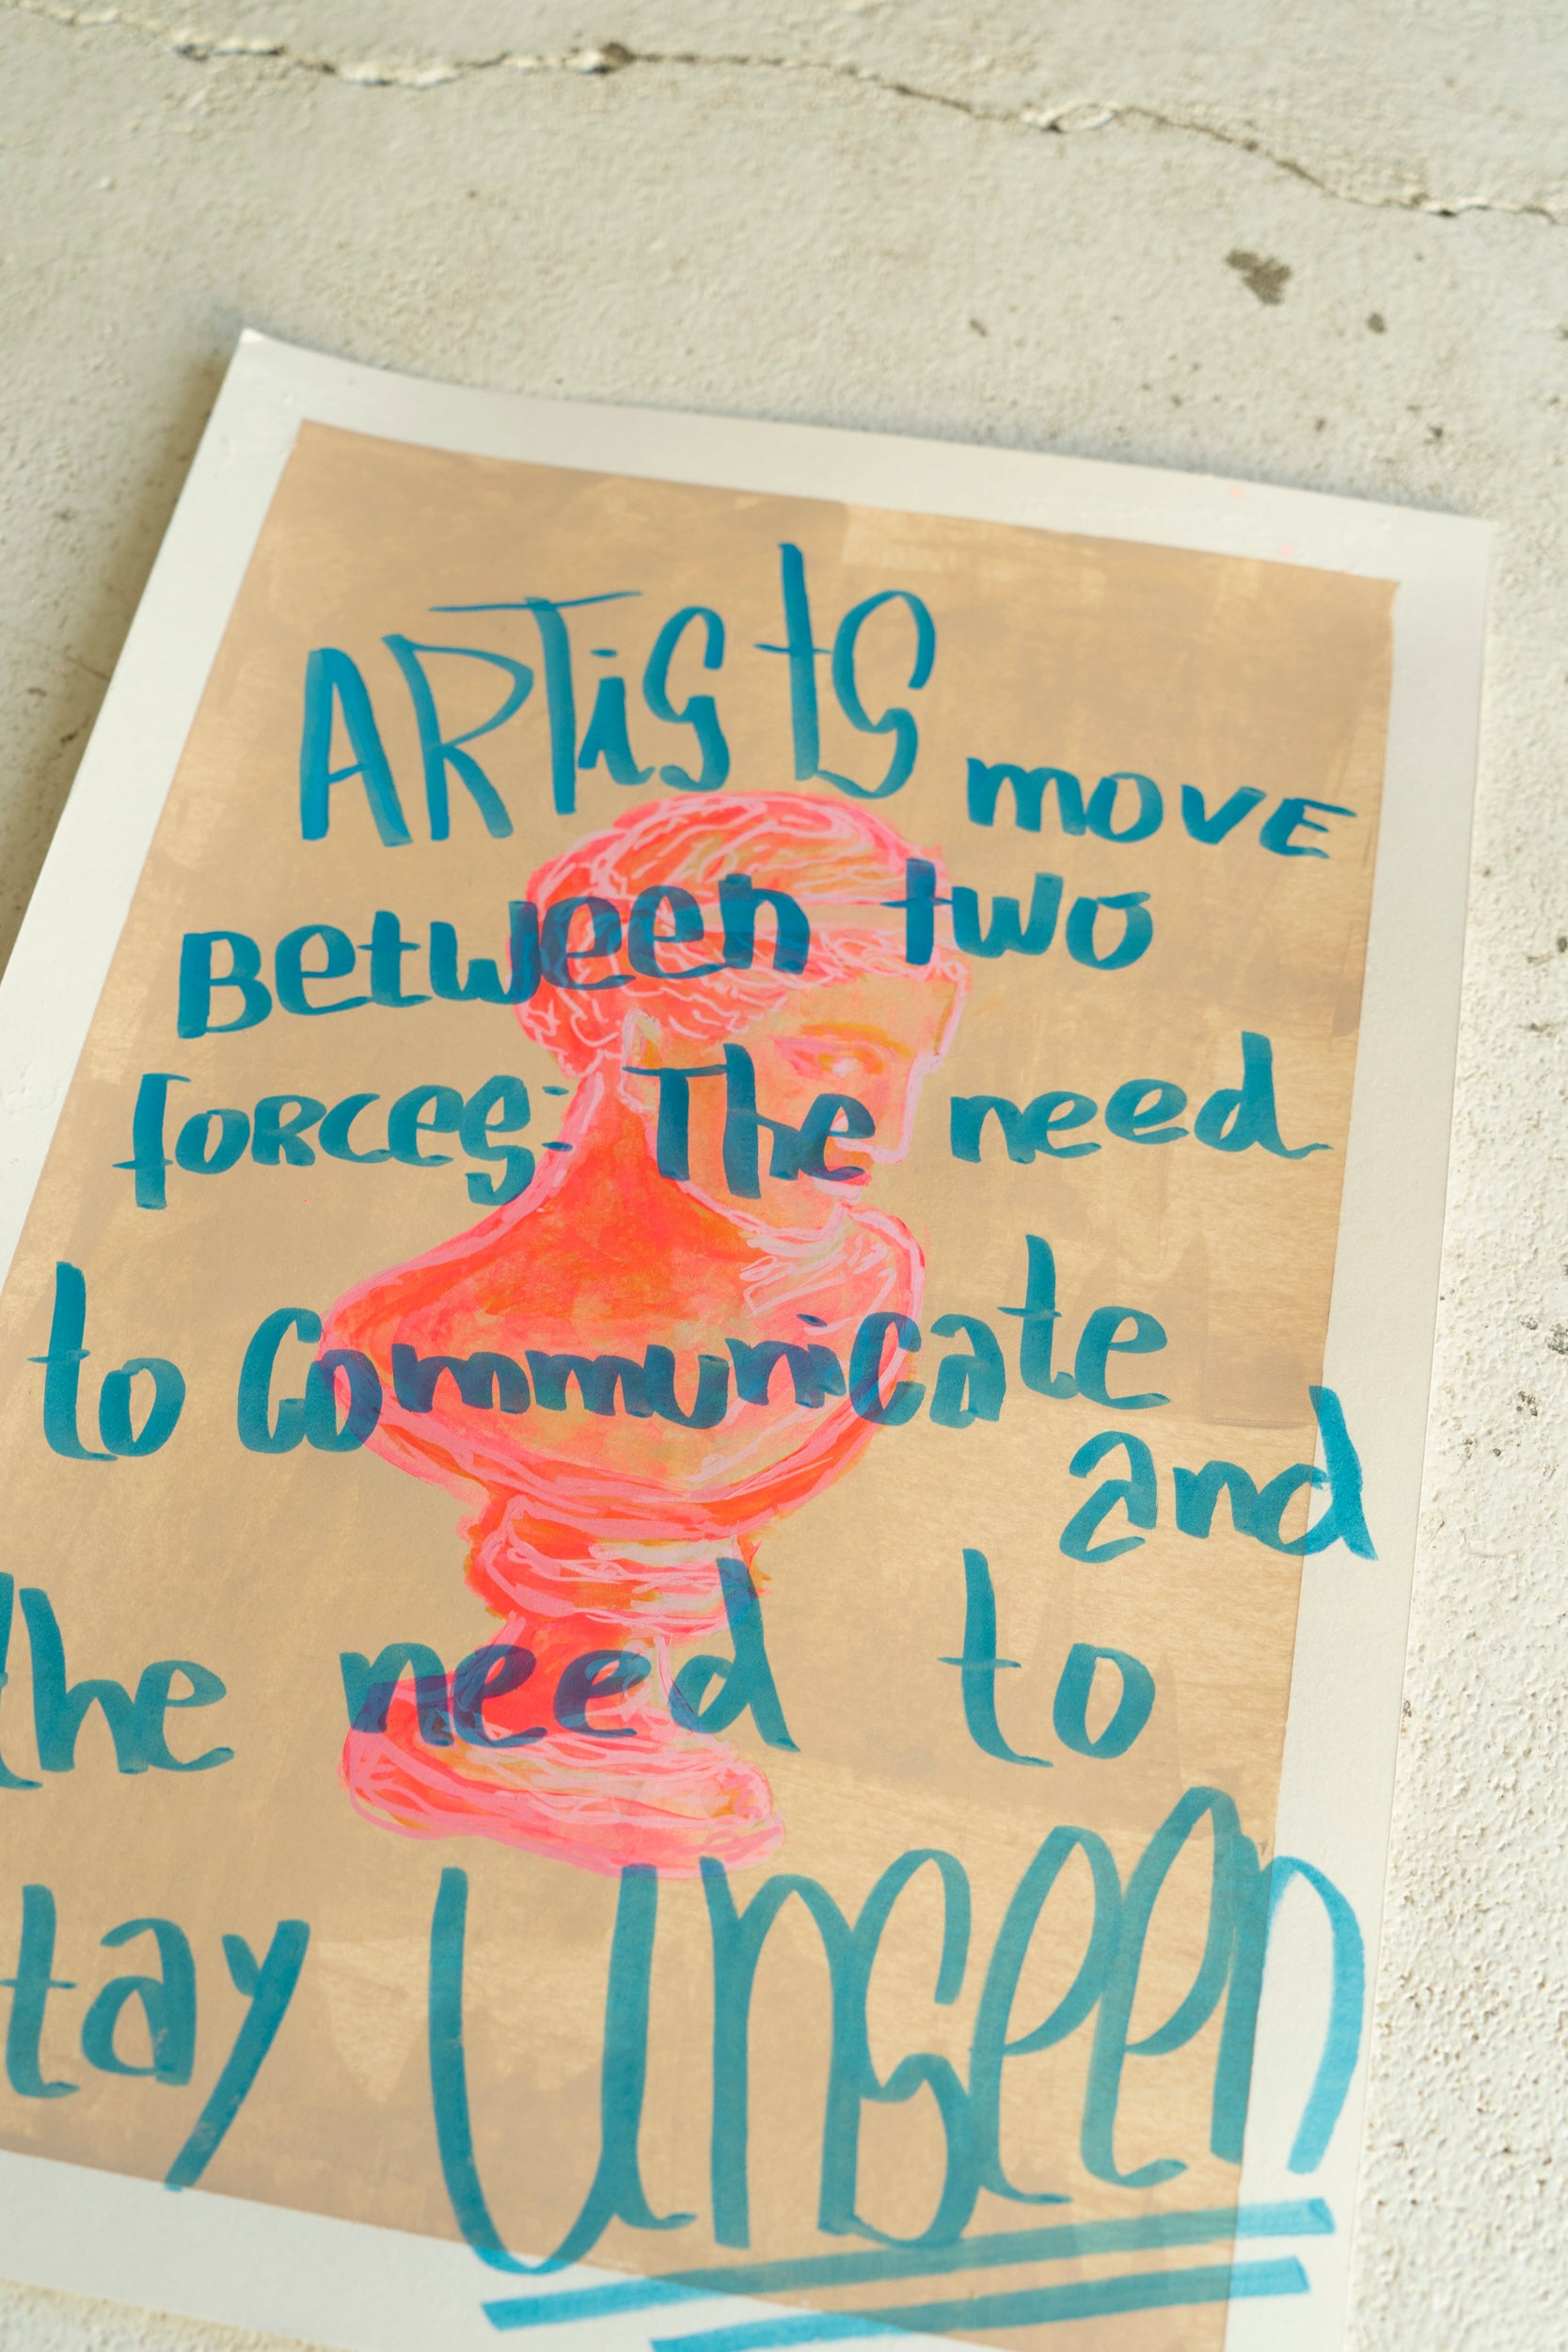 ARTists move
Between two
forces: The need
to communicate
and
the need to
tay Unseen